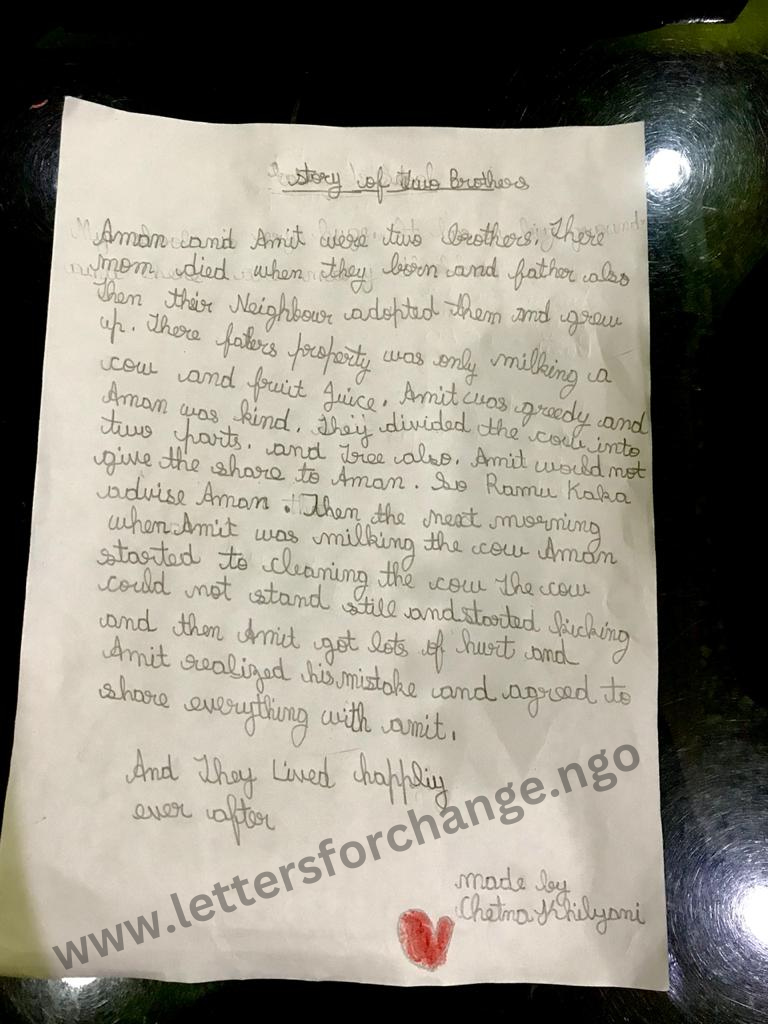 story of two Brothers
Aman and Amit were two brothers. There
mom died when they born and father also
Then their Neighbour adopted them and grew
up. There faters property was only milking a
cow and fruit juice. Amit was greedy and
Aman was kind. They divided the cow into
two parts. and Tree also. Amit would not
give the share to Aman. So Ramu Kaka
advise Aman. Then the next morning
when Amit was milking the cow Aman
started to cleaning the cow The cow
could not stand still and started kicking
and then Amit got lots of hurt and
Amit realized his mistake and agreed to
share everything with amit.
And They Lived happliy
ever after
made by
Chetna Khilyani
www.lettersforchange.ngo